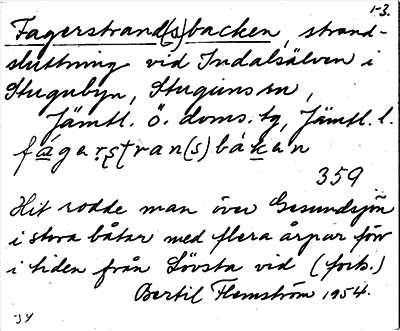 1-3.
Fagerstrand(s)backen, strand-
sluttning vid Indalsälven i
Stugubyn, Stuguns sn,
Jämtl. ö. doms. tg, Jämtl. l.
fágarstran(s)bákan
359
Hit rodde man över Gesundsjön
i stora båtar med flera årpar förr
i tiden från Lövsta vid (forts.)
Bertil Flemström 1954.